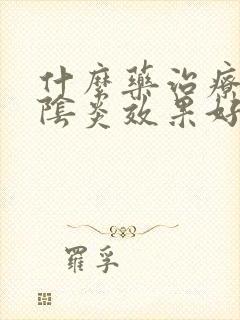 什麼藥治療
陰炎效果好
羅孚